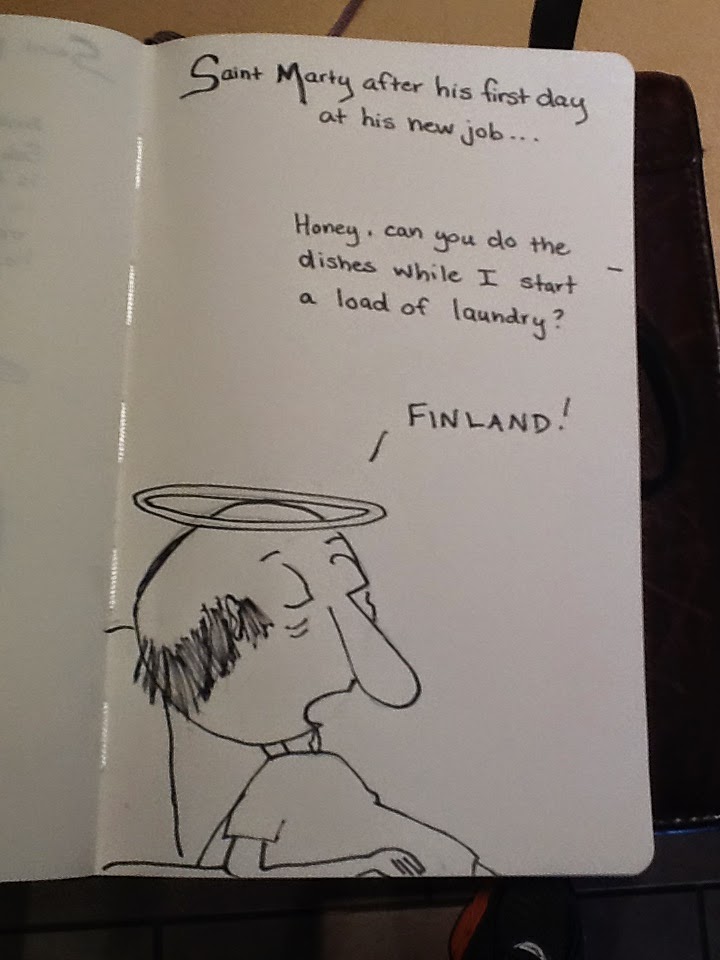 Saint Marty after his first day
at his new job...
Honey, can you do the
dishes while I start
a load of laundry?
FINLAND!